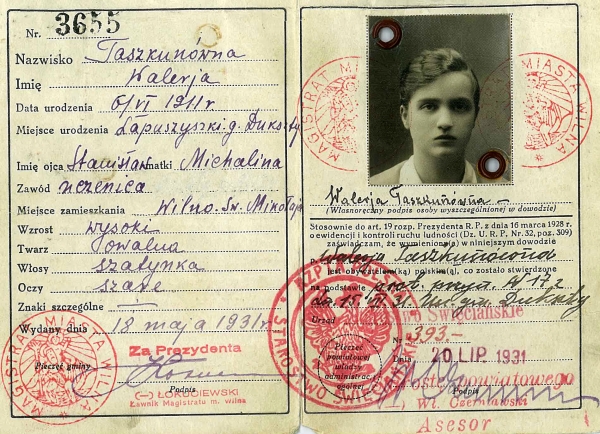 Nr. 3655
Nazwisko Taszkunówna
Imię Walerja
Data urodzenia 6/VI 1911 r
Miejsce urodzenia Łapuszyszki g. Dukszty
Imię ojca Stanisław matki Michalina
Zawód uczenica
Miejsce zamieszkania Wilno. Św. Mikołaja
Wzrost wysoki
Twarz owalna
Włosy szatynka
Oczy szare
Znaki szczególne
Wydany dnia 18 maja 1931 r
Za Prezydenta
Pieczęć gminy
Podpis
(—) ŁOKUCIEWSKI
Ławnik Magistratu m. wilna
MAGISTRAT MIASTA WILNA
MAGISTRAT MIASTA WILNA
Walerja Taszkunówna
(Własnoręczny podpis osoby wyszczególnionej w dowodzie)
Stosownie do art. 19 rozp. Prezydenta R. P. z dnia 16 marca 1928 r.
o ewidencji i kontroli ruchu ludności (Dz. U. R. P. Nr. 32, poz. 309)
zaświadczam, że wymieniona(y) w niniejszym dowodzie
Walerja Taszkunówna
jest obywatelem(ką) polskim(ą), co zostało stwierdzone
na podstawie prot. przyn. N 17, z
da. 15. VI. 31. gm. Dukszty
Urząd Święciańskie
STAROSTWO
Pieczęć
powiatowej
władzy
administracji
ogólnej
Nr. 393.-
Dnia 20 LIP. 1931
powiatowego
Podpis
(—) Wł. Czerniawski
Asesor